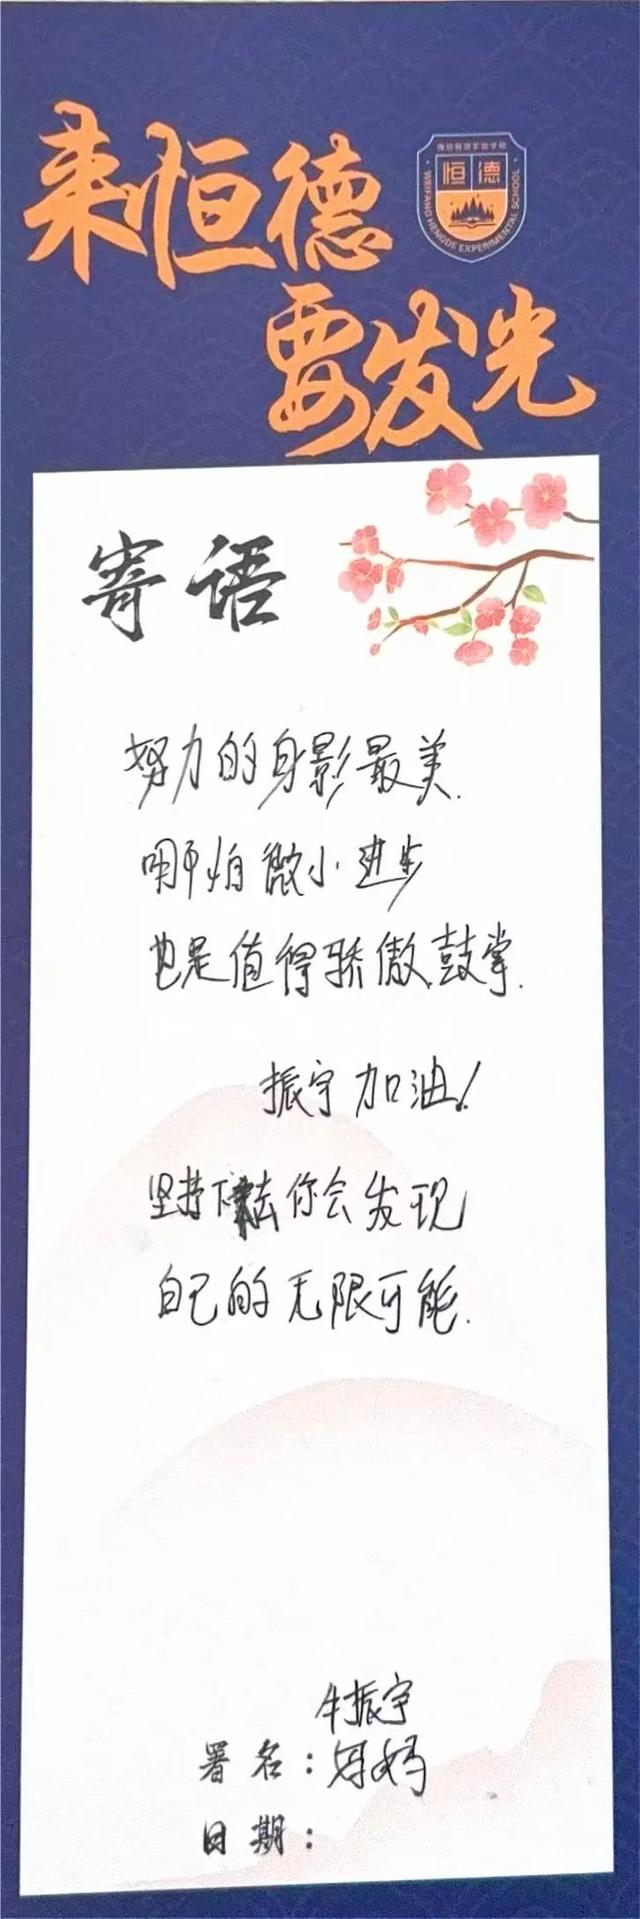 来恒德
要发光
恒德
WEIFANG HENGDE EXPERIMENTAL SCHOOL
寄语
努力的身影最美.
哪怕微小进步
也是值得骄傲.鼓掌.
振宇加油!
坚持下去你会发现
自己的无限可能.
牛振宇
署名:妈妈
日期: